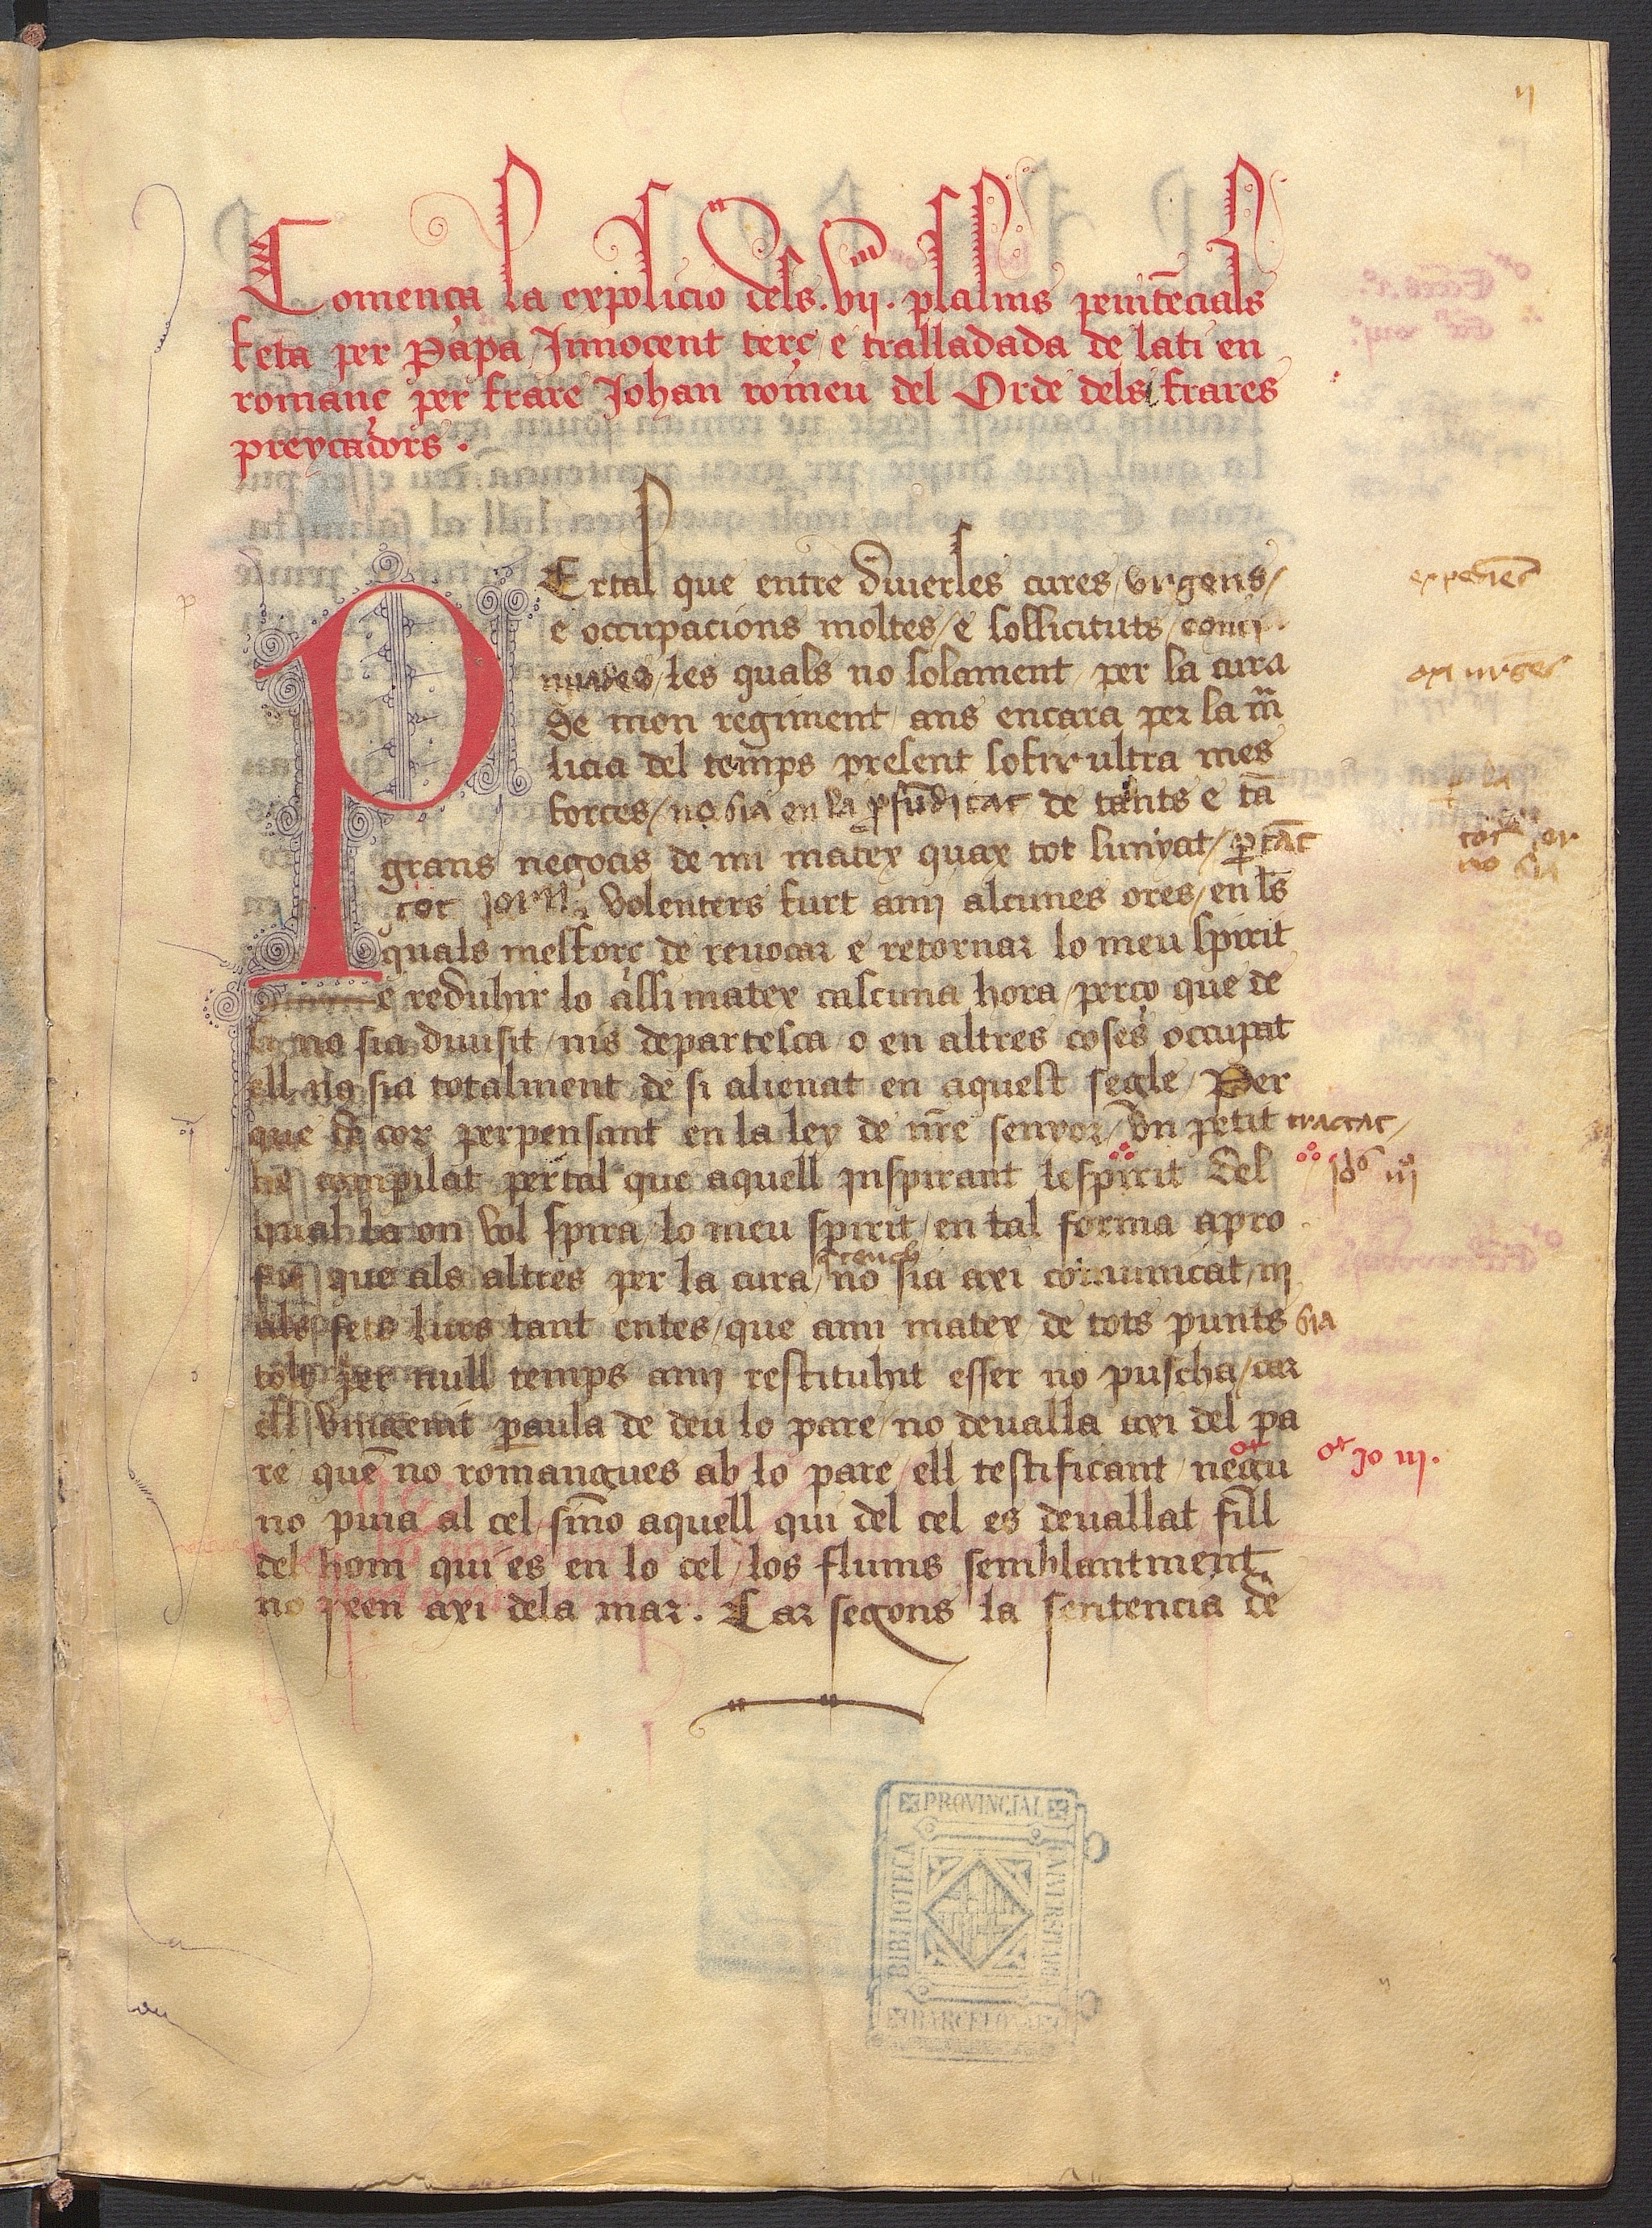 Comença la exposicio dels .vii. psalms penitēcials
feta per Papa Innocent terç e trasladada de lati en
romanç per frare Johan romeu del Orde dels frares
preycadors .
PErtal que entre diuerses cures / vrgens /
e occupacions moltes / e sollicituts / conti
nuades / les quals no solament per la cura
de mon regiment / ans encara per la m̄
licia del temps present sofir ultra mes
forces / no sia en la p̄fūditat de tants e tā
grans negocis de mi matex quax tot lunyat / per tāt
tot jorn volenters furt amj alcunes ores / en ls̄
quals mesforç de reuocar e retornar lo meu spirit
e reduhir lo assi matex cascuna hora / perço que de
si no sia diuisit / nis departesca / o en altres coses occupat
ell no sia totalment de si alienat en aquest segle / Per
que de cor perpensant en la ley de nr̄e senyor / vn petit tractat /
he compilat pertal que aquell inspirant lespirit del
qual la on vol spira / lo meu spirit / en tal forma apro
fit que als altres per la cura / no sia axi comunicat / nj
als fets lures tant entes / que ami matex de tots punts sia
tolt per null temps amj restituhit esser no puscha / car
ell vnigenit paraula de deu lo pare / no deualla axi del pa
re quē no romangues ab lo pare / ell testificant / negu
no puia al cel / sinō aquell qui del cel es deuallat fill
del hom qui es en lo cel / los flums semblantment
no ixen axi dela mar . Car segons la sentencia de
expedien̄t
axi urgēs
tot jor
no sia
Jo iij.
PROVINCIAL
BIBLIOTECA
UNIVERSITARIA
BARCELONA